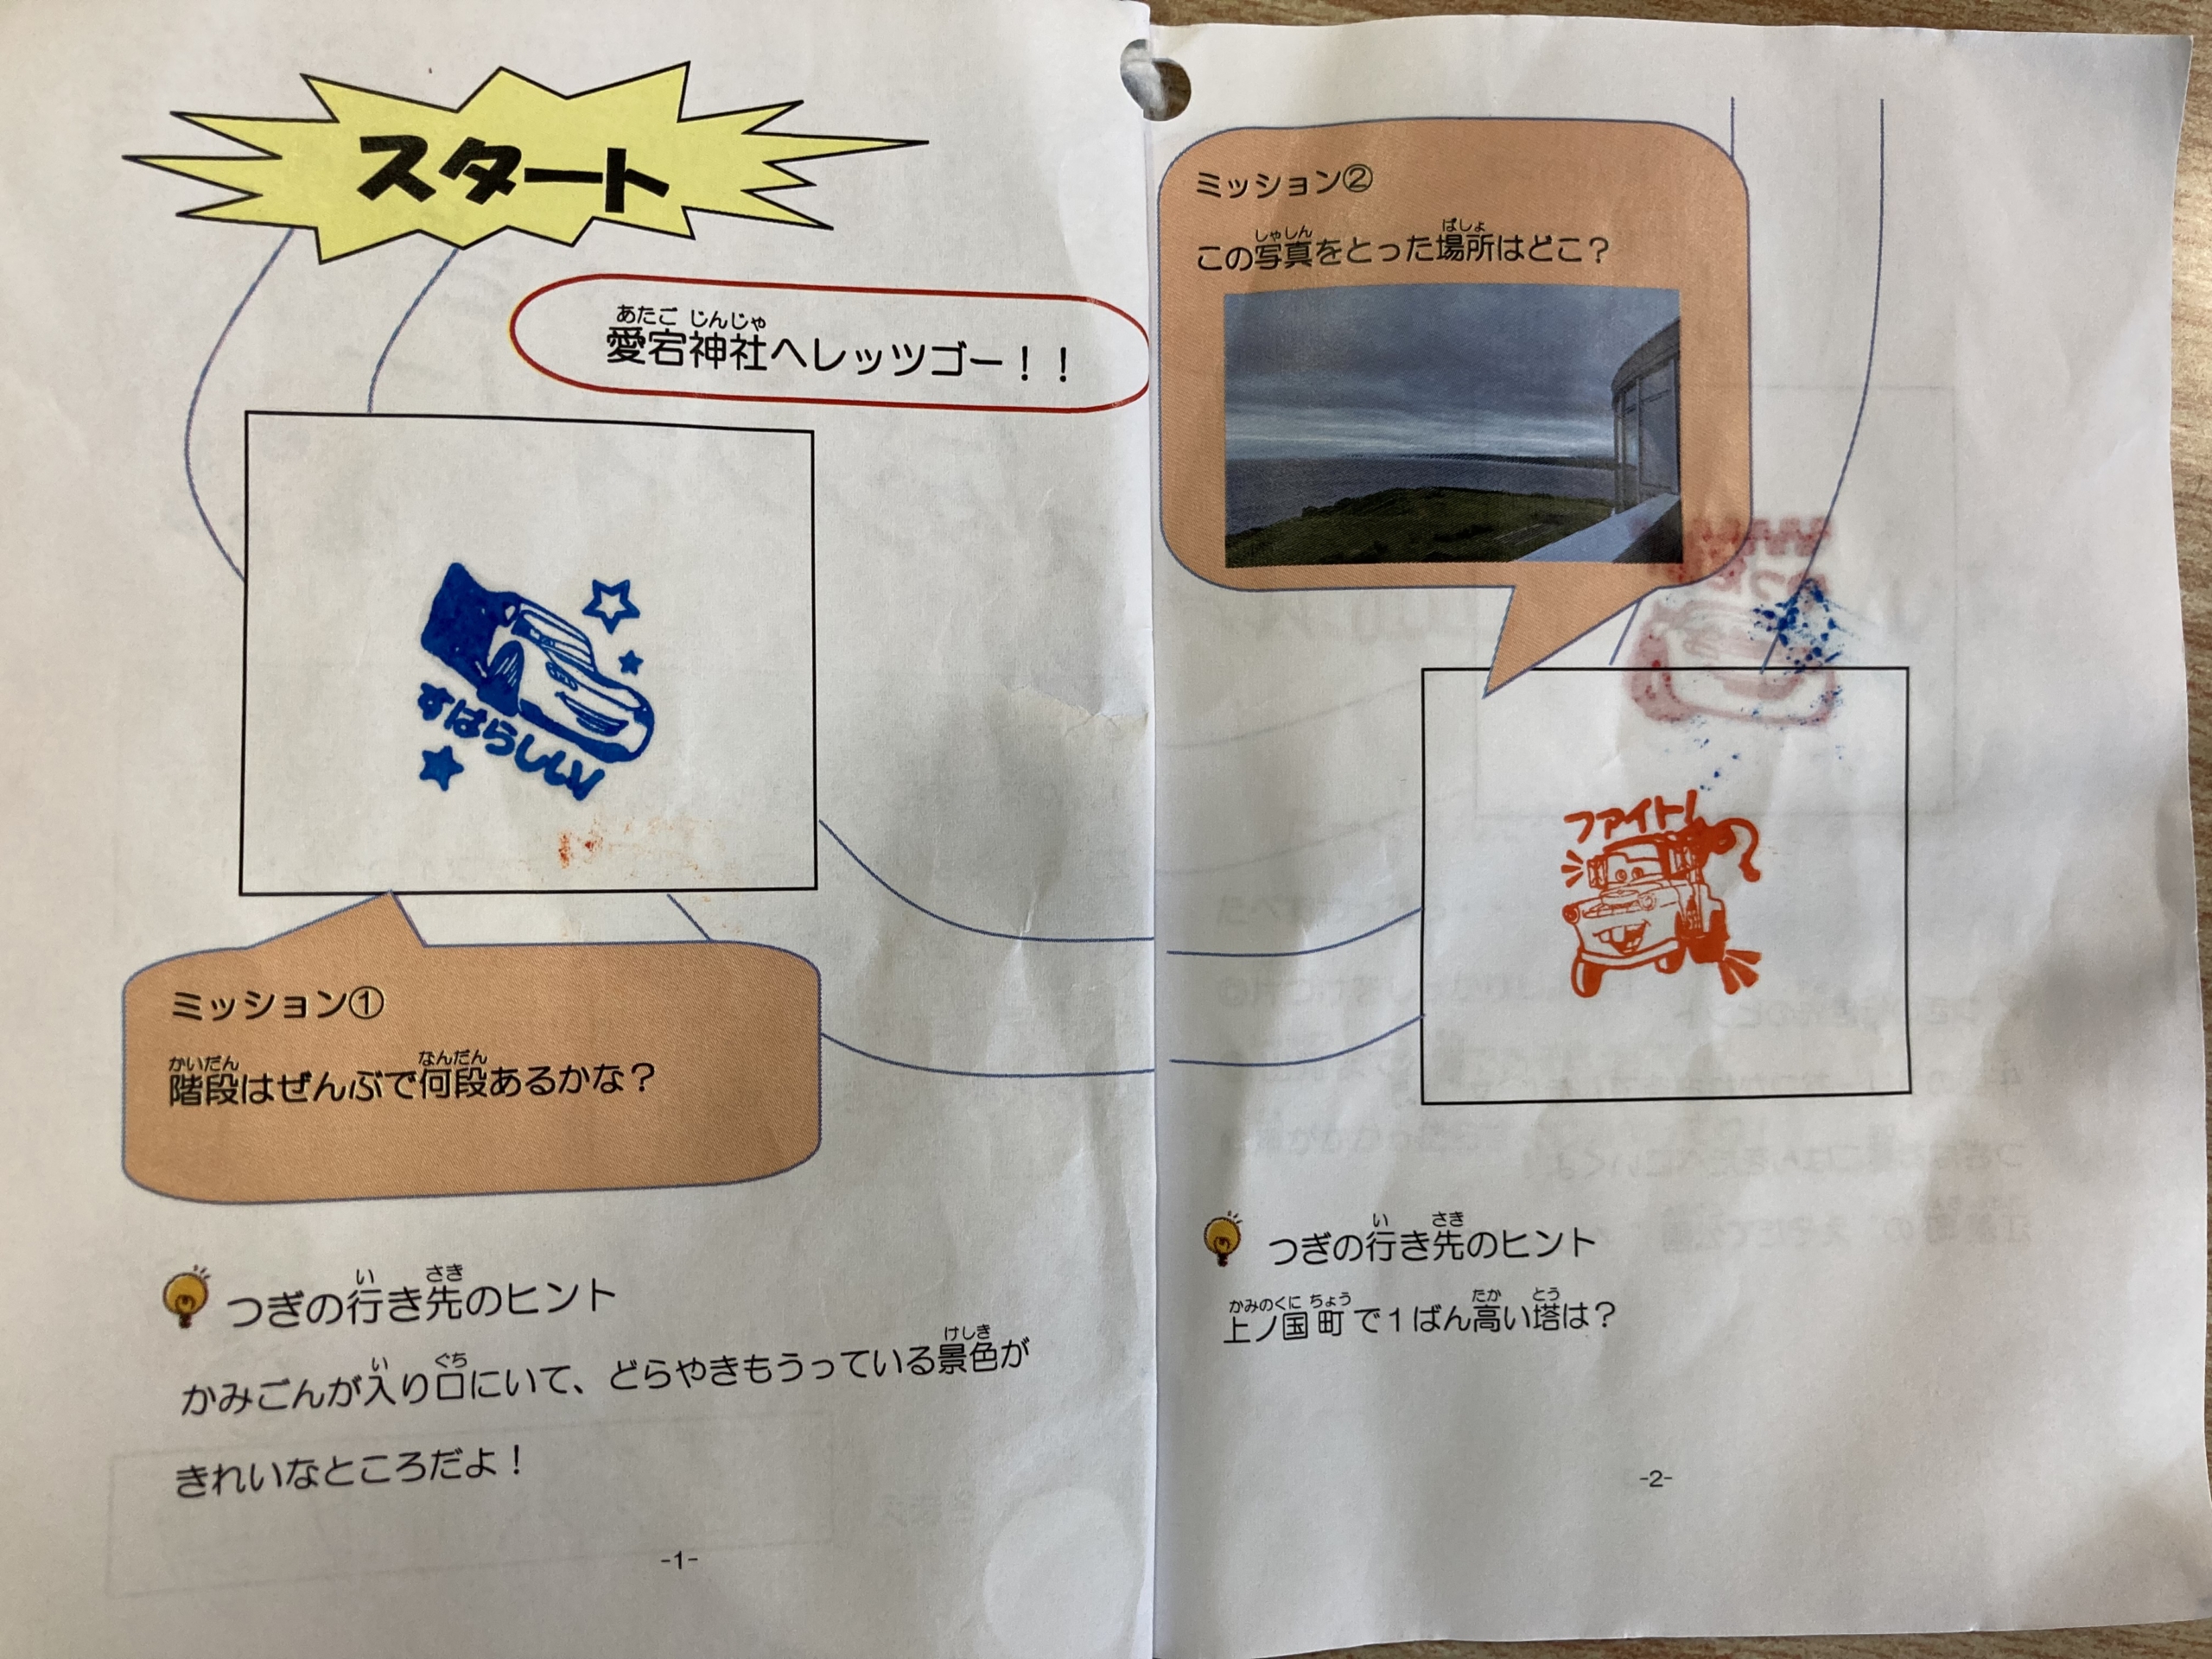 スタート
愛宕神社へレッツゴー！！
あたご じんじゃ
すばらしい!
ミッション①
階段はぜんぶで何段あるかな？
かいだん なんだん
つぎの行き先のヒント
い さき
かみごんが入り口にいて、どらやきもうっている景色が
い ぐち けしき
きれいなところだよ！
-1-
ミッション②
この写真をとった場所はどこ？
しゃしん ばしょ
ファイト!
つぎの行き先のヒント
い さき
上ノ国町で１ばん高い塔は？
かみのくに ちょう たか とう
-2-